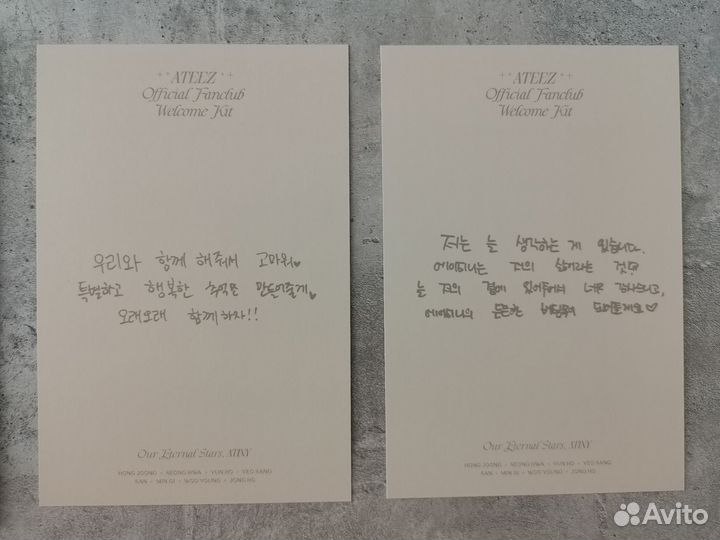 ATEEZ
Official Fanclub
Welcome Kit
우리와 함께 해줘서 고마워♡
특별하고 행복한 추억만 만들어줄게♡
오래오래 함께하자!!
Our Eternal Stars, ATINY
HONG JOONG SEONG HWA YUN HO YEO SANG
SAN MIN GI WOO YOUNG JONG HO
ATEEZ
Official Fanclub
Welcome Kit
저는 늘 생각하는 게 있습니다.
에이티니는 저의 삶이라는 것과
늘 저의 곁에 있어주셔서 너무 감사드리고,
에이티니의 든든한 버팀목 되어줄게요♡
Our Eternal Stars, ATINY
HONG JOONG SEONG HWA YUN HO YEO SANG
SAN MIN GI WOO YOUNG JONG HO
Avito